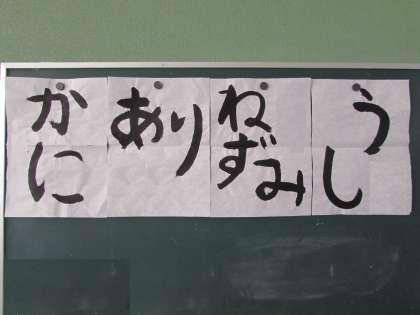 うし
ねずみ
あり
かに